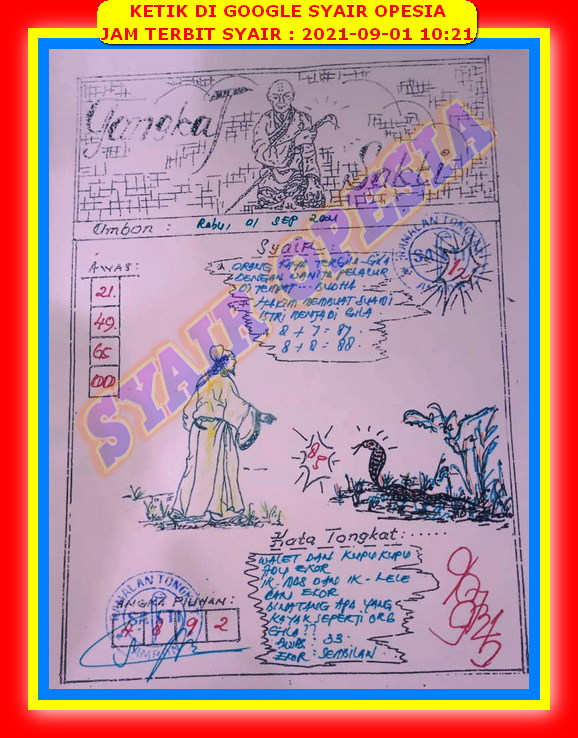 KETIK DI GOOGLE SYAIR OPESIA
JAM TERBIT SYAIR : 2021-09-01 10:21
SYAIR OPESIA
Tongkat Sakti
Umbon : Rabu, 01 SEP 2021
Syair :
AWAS :
21.
49.
65
00
ORANG KAYA TERGILA-GILA
DENGAN WANITA PELACUR
DI TEMPAT ... BUDHA
HAKIM MEMBUAT SUAMI
ISTRI MENJADI GILA
8 + 7 = 87
8 + 8 = 88
SAKTI
12
85
Kata Tongkat : ......
WALET DAN KUPU KUPU
ADU EKOR
IK. MAS DAN IK - LELE
CARI EKOR
BINATANG APA YANG
KAYAK SEPERTI ORG
GILA ??
33
EKOR : SEMBILAN
ANGKA PILIHAN :
8 9 2
SAKTI